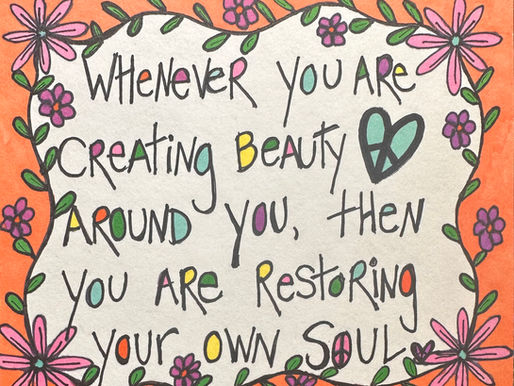 WHENEVER YOU ARE
CREATING BEAUTY
AROUND YOU, THEN
YOU ARE RESTORING
YOUR OWN SOUL.